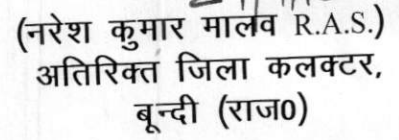 (नरेश कुमार मालव R.A.S.)
अतिरिक्त जिला कलक्टर,
बून्दी (राज0)